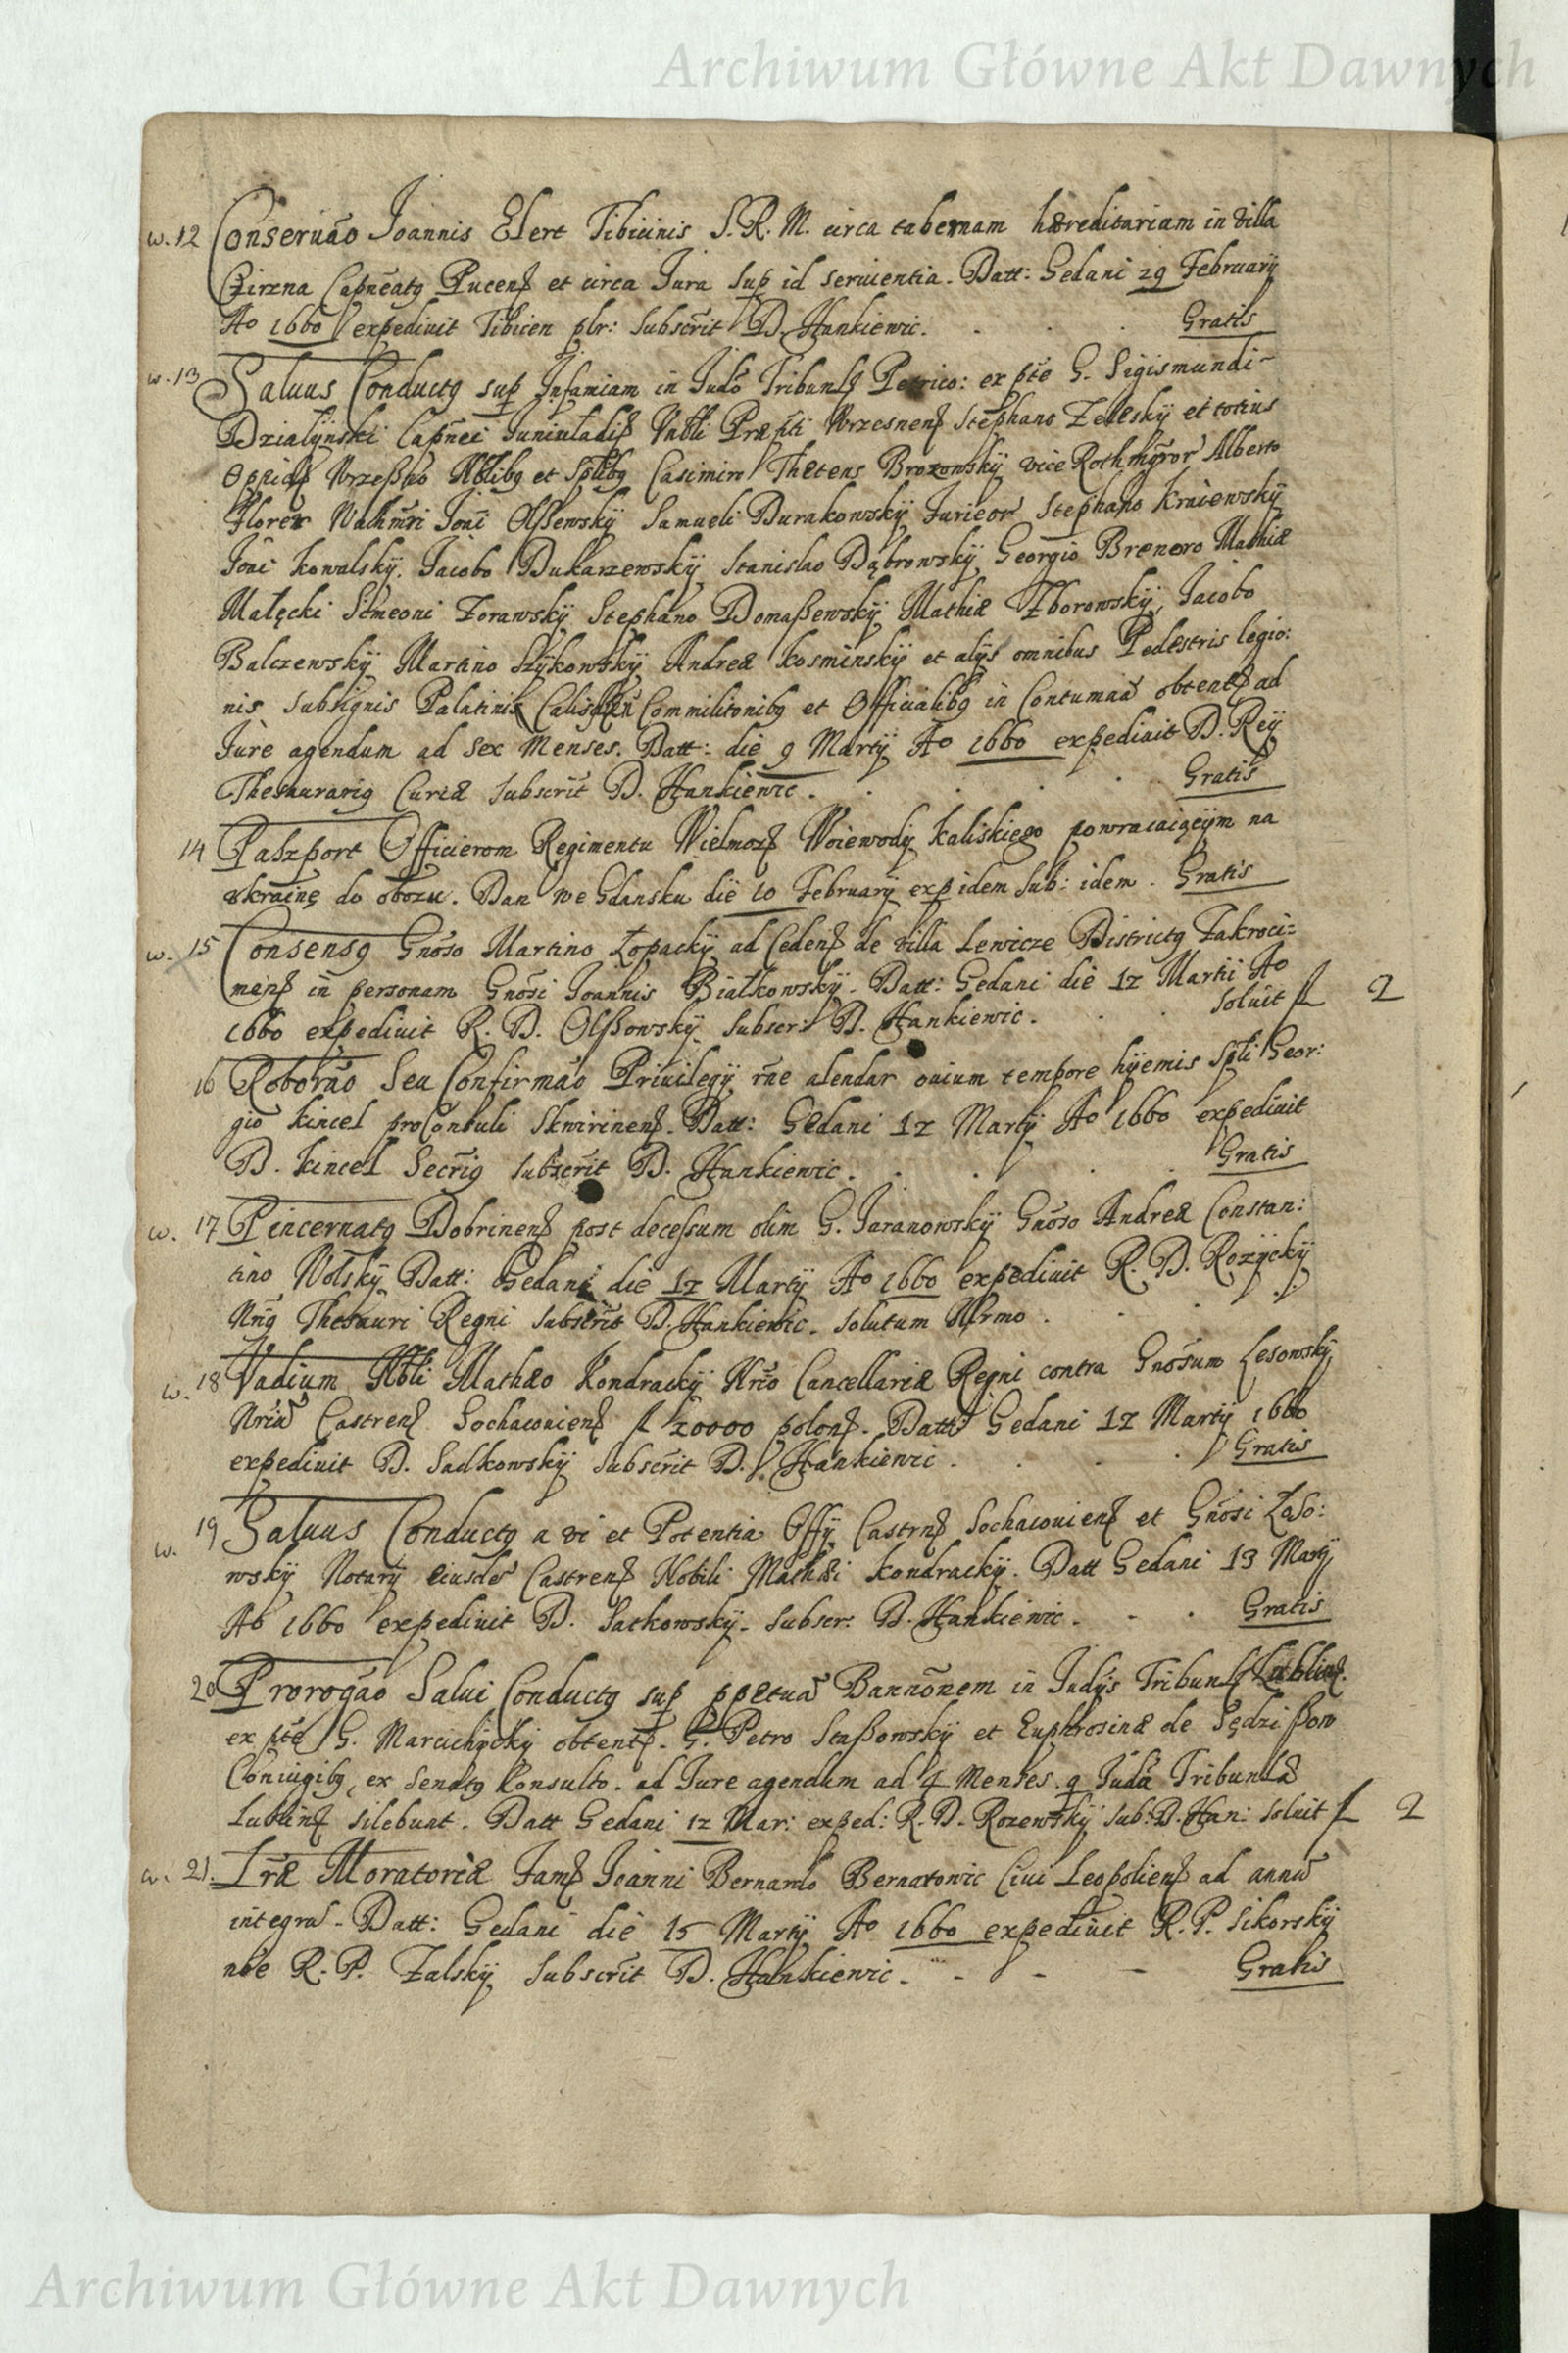 Archiwum Główne Akt Dawnych
w. 12 Conseruāo Joannis Elert Tibicinis S. R. M. circa tabernam hæreditariam in villa
Czirzna Capneatg Pucenß et circa Jura sup id seruientia. Datt: Gedani 29 February
Ao 1660 expediuit Tibicen plr: Subscrit D. Hankiewic. Gratis
w. 13 Saluus Conductg sup Infamiam in Judo Tribunlß Petrico: ex pte G. Sigismundi
Dzialÿnski Capnei Iuniuladiß Vnbli Præsiti Wrzesnenß Stephano Zeleskÿ et totius
Oppidß Wrzeßno Nblibg et Splibg Casimiro Thetens Brozowskÿ vice Rothmgror Alberto
Florer Wahmri Joni Olßewskÿ Samueli Durakowskÿ Furieor Stephano Kraiewskÿ
Joni Kowalskÿ. Jacobo Dukarzewskÿ Stanislao Dąbrowskÿ Georgio Brenero Mathiæ
Małęcki Simeoni Zorawskÿ Stephano Domaßewskÿ Mathiæ Zborowskÿ, Jacobo
Balczewskÿ Martino Szÿkowskÿ Andreæ Kosminskÿ et alÿs omnibus Pedestris legio:
nis subsignis Palatinis Calisßen Commilitonibg et Officialibg in Contumaā obtentß ad
Jure agendum ad sex Menses. Datt: die 9 Martÿ Ao 1660 expediuit D. Reÿ
Thesaurarig Curiæ Subscrit D. Hankiewic. Gratis
14 Paszport Officierom Regimentu Wielmoż Woiewodÿ Kaliskiego powracaiącÿm na
vkrainę do obozu. Dan we Gdansku die 10 Februarÿ exp idem Sub: idem. Gratis
w. 15 Consensg Gnoso Martino Łopackÿ ad Cedenß de villa Lewicze Districtg Zakroci=
menß in personam Gnosi Joannis Białkowskÿ. Datt: Gedani die 12 Martii Ao
1660 expediuit R. D. Olßowskÿ Subscr: D. Hankiewic. Soluit fl 2
16 Roborāo Seu Confirmāo Priuilegÿ rne alendar ouium tempore hÿemis Spli Geor:
gio Kincel proConsuli Skwirinenß. Datt: Gedani 12 Martÿ Ao 1660 expediuit
D. Kincel Secrig Subscrit D. Hankiewic. Gratis
w. 17 Pincernatg Dobrinenß post decessum olim G. Jaranowskÿ Gnoso Andreæ Constan:
tino Wolskÿ Datt: Gedani die 12 Martÿ Ao 1660 expediuit R. D. Rożÿckÿ
Nng Thesauri Regni Subscrit D. Hankiewic. solutum Nrmo.
w. 18 Vadium Nbli Mathæo Kondrackÿ Nrio Cancellariæ Regni contra Gnosum Lesowskÿ
Nriū Castrenß Sochaouienß fl 20000 polonß. Datt: Gedani 12 Martÿ 1660
expediuit D. Sadkowskÿ Subscrit D. Hankiewic. Gratis
w. 19 Saluus Conductg a vi et Potentia Offÿ Castrnß Sochaouienß et Gnosi Zaso:
wskÿ Notarÿ eiusdē Castrenß Nobili Mathæi Kondrackÿ. Datt Gedani 13 Martÿ
Ao 1660 expediuit D. Satkowskÿ. Subscr. D. Hankiewic. Gratis
20 Prorogāo Salui Conductg sup ppetuā Bannōnem in Judÿs Tribunlß Lublinß.
ex pte G. Marcichÿckÿ obtentß. G. Petro Staßowskÿ et Euphrosinæ de Sędzißow
Coniugibg, ex Senatg Consulto. ad Jure agendum ad 4 Menses. q Juda Tribunlā
Lublinß silebunt. Datt Gedani 12 Mar: exped: R. D. Rozewskÿ Sub: D. Han: soluit fl 2
w. 21. Lræ Moratoriæ Famß Joanni Bernardo Bernatowic Ciui Leopolienß ad annū
integrū. Datt: Gedani die 15 Martÿ Ao 1660 expediuit R. P. Sikorskÿ
nōe R. P. Zalskÿ Subscrit D. Hankiewic. Gratis
Archiwum Główne Akt Dawnych